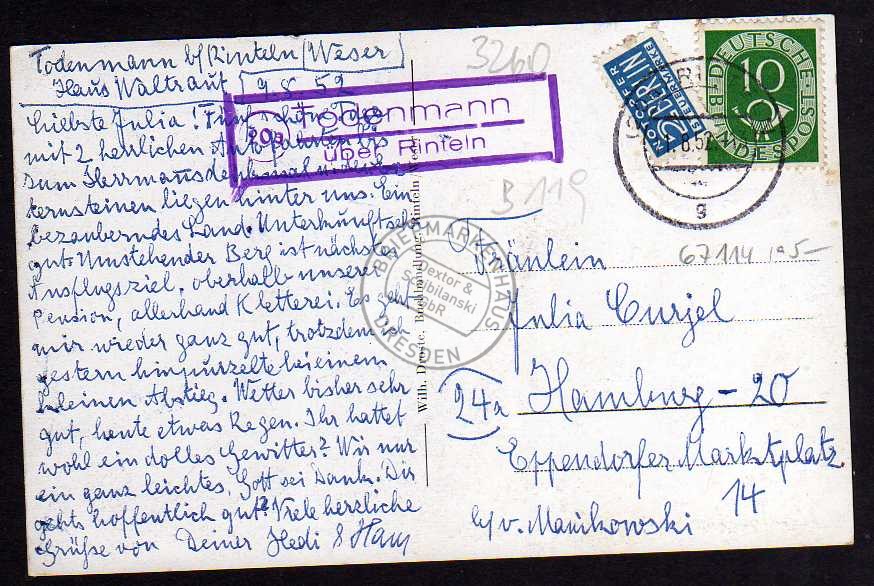 Todenmann b/Rinteln/Weser
Haus Waltraut 9.8.52
Liebste Julia! Fünf schöne Tage
mit 2 herrlichen Autofahrten bis
zum Hermannsdenkmal u. den Ex-
ternsteinen liegen hinter uns. Ein
bezauberndes Land. Unterkunft sehr
gut. Umstehender Berg ist nächstes
Ausflugsziel, oberhalb unserer
Pension, allerhand Kletterei. Es geht
mir wieder ganz gut, trotzdem ich
gestern hinpurzelte bei einem
kleinen Abstieg. Wetter bisher sehr
gut, heute etwas Regen. Ihr hattet
wohl ein dolles Gewitter? Wir nur
ein ganz leichtes, Gott sei Dank. Dir
gehts hoffentlich gut? Viele herzliche
Grüße von Deiner Hedi & Hans
Todenmann
über Rinteln
3260
B 119
NOTOPFER
2 BERLIN
STEUERMARKE
DEUTSCHE BUNDESPOST
10
g
67114
Fräulein
Julia Curjel
24a Hamburg - 20
Eppendorfer Marktplatz
14
b/v. Manikowski
Wilh. Buchhandlung, Rinteln Weser
BRIEFMARKENHAUS
Dextor &
Scibilanski
GbR
DRESDEN